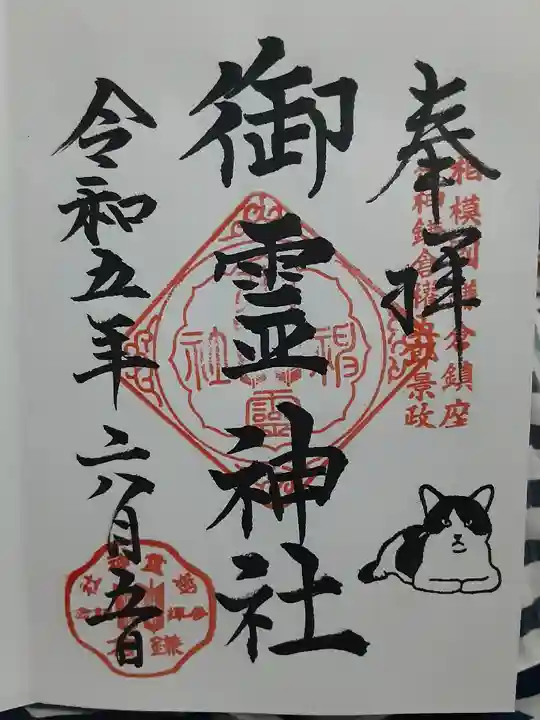 奉拝
相模国鎌倉鎮座
神鎌倉権五郎景政
御霊神社
令和五年六月五日